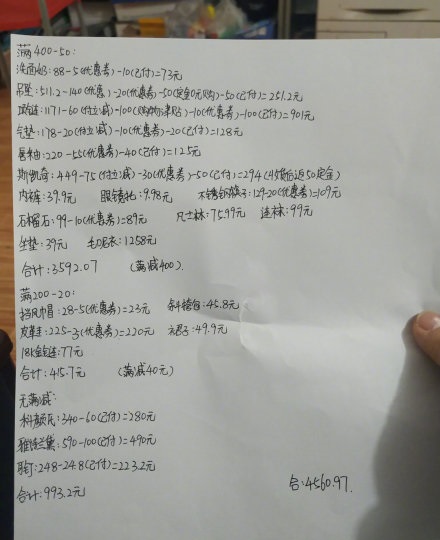 满400-50:
洗面奶:88-5(优惠券)-10(已付)=73元
吊坠:511.2-140(优惠)-20(优惠券)-50(定金0元购)-50(已付)=251.2元
项链:1171-60(付立减)-100(购物津贴)-10(优惠券)-100(已付)=901元
气垫:178-20(付立减)-10(优惠券)-20(已付)=128元
唇釉:220-55(优惠券)-40(已付)=125元
斯凯奇:449-75(付立减)-30(优惠券)-50(已付)=294(付婚后返50定金)
内裤:39.9元 眼镜布:9.98元 不锈钢筷子:129-20(优惠券)=109元
石榴石:99-10(优惠券)=89元 凡士林:75.99元 连袜:99元
坐垫:39元 毛呢衣:1258元
合计:3592.07 (满减400)
满200-20:
挡风巾帽:28-5(优惠券)=23元 斜挎包:45.8元
皮鞋:225-3(优惠券)=220元 裙子:49.9元
18k金链:77元
合计:415.7元 (满减40元)
无满减:
科颜氏:340-60(已付)=280元
雅诗兰黛:590-100(已付)=490元
耳钉:248-24.8(已付)=223.2元
合计:993.2元
合:4560.97.